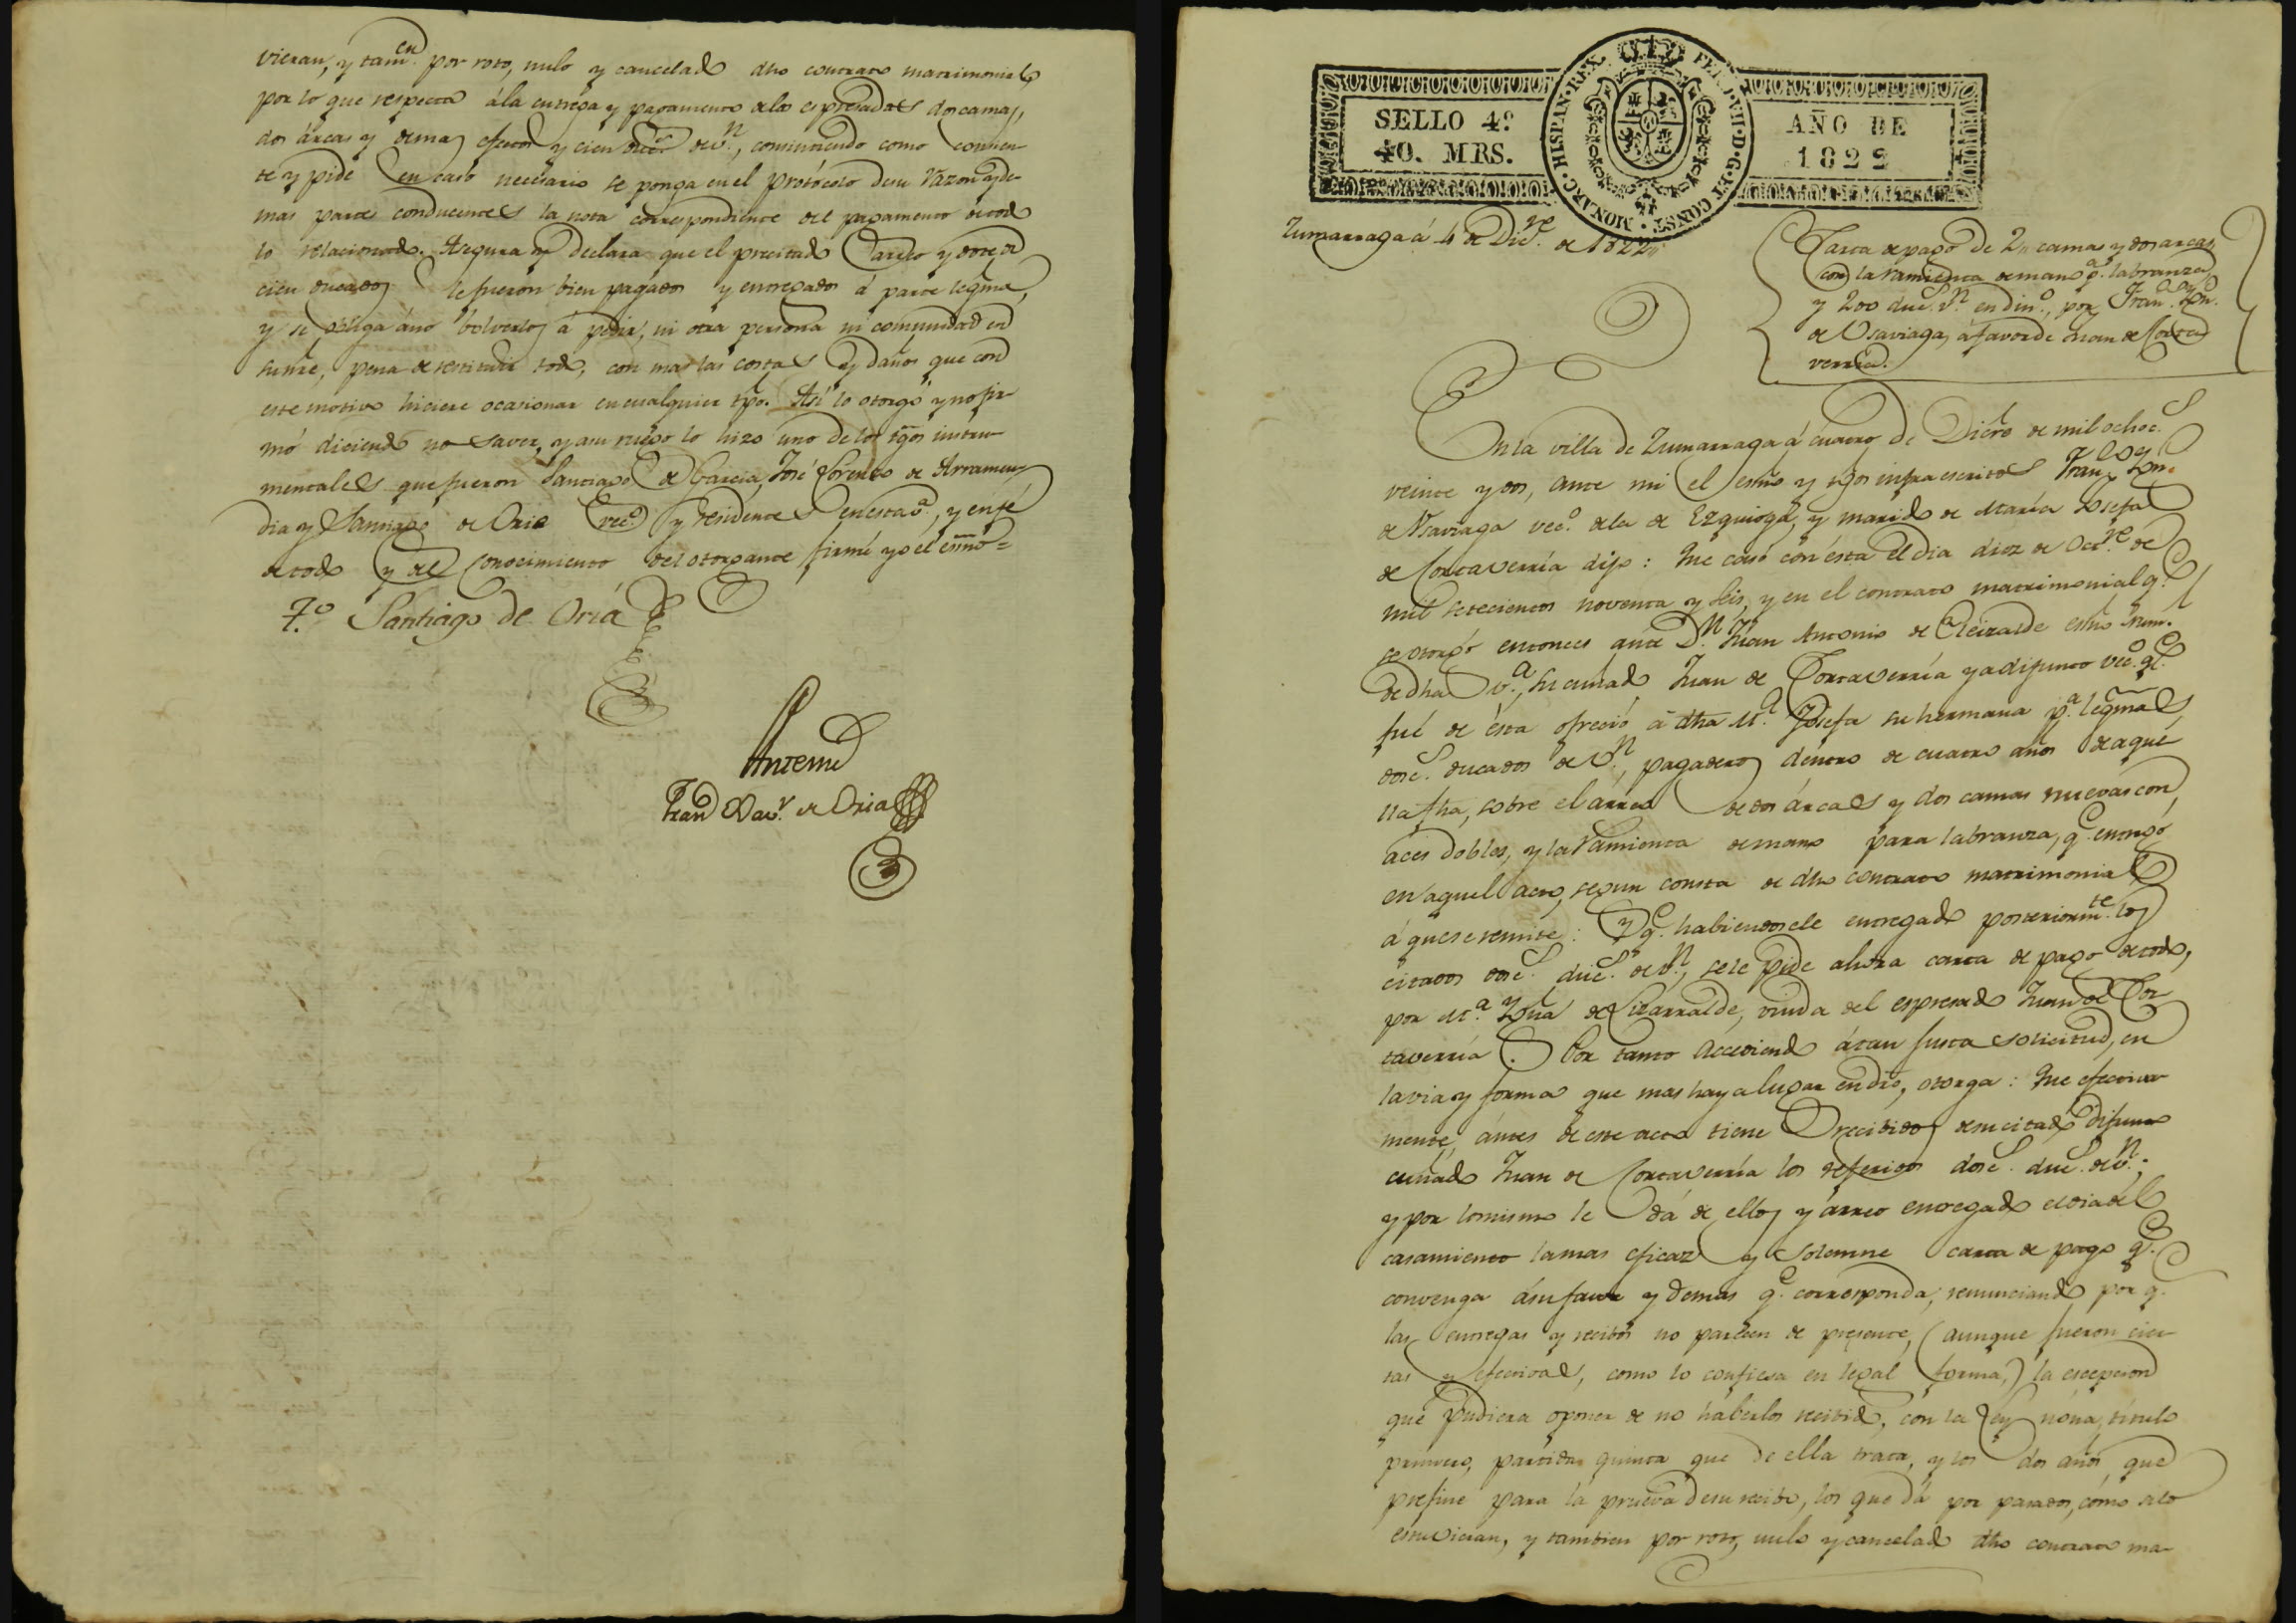 vieran, y tamᵉⁿ. por roto, nulo y cancelado dho contrato matrimonial,
por lo que respecta á la entrega y pagamento de las espresadas dos camas,
dos árcas y demas efectos y cien duc.ˢ de v.ⁿ, consintiendo como consien-
te y pide en caso necesario se ponga en el protócolo de su razon y de-
mas partes conducentes la nota correspondiente del pagamento de todo
lo relacionado. Asegura y declara que el precitado arréo y dote de
cien ducados le fueron bien pagados y entregados á parte legma,
y se obliga á no bolverlos á pedir, ni otra persona ni comunidad en
su nre, pena de restituir todo, con mas las costas y daños que con
este motivo hiciere ocasionar en cualquier tpo. Así lo otorgó y no fir-
mó diciendo no saver, y a su ruego lo hizo uno de los tgos instru-
mentales que fueron Santiago de Garcia, José Lorenzo de Arramen-
dia y Santiago de Oria vec.ˢ y residentes en esta v.ᵃ, y en fé
de todo y del conocimiento del otorgante firmé yo el esno =
T.º Santiago de Oria
Antemi
Fran Xav.ʳ de Oria
SELLO 4º
40. MRS.
HISPAN. REX. FERD. VII. D. G. ET CONST. MONARC.
AÑO DE
1822
Zumarraga á 4 de Dic.ʳᵉ de 1822
Carta de pago de 2 camas y dos arcas
con la ramienta de mano p.ᵃ labranza,
y 200 duc.ˢ v.ⁿ en din.º, por Fran.ᶜᵒ Ygn.º
de Usaviaga, á favor de Juan de Corta-
verria.
En la villa de Zumarraga á cuatro de Dicre de mil ochoc.ˢ
veinte y dos, ante mi el esno y tgos infraescritos Fran.ᶜᵒ Ygn.º
de Usaviaga vec.º de la de Ezquioga, y marido de María Josefa
de Cortaverría dijo: Que casó con ésta el dia diez de Oct.ʳᵉ de
mil setecientos noventa y seis, y en el contrato matrimonial q.ᵉ
se otorgó entonces ante D.ⁿ Juan Antonio de Eleizalde esno Num.ˡ
de dha v.ᵃ, su cuñado Juan de Cortaverría ya difunto vec.º q.ᵉ
fué de ésta ofreció á dha M.ᵃ Josefa su hermana p.ᵃ legmas
dosc.ˢ ducados de v.ⁿ, pagaderos déntro de cuatro años de aque-
lla fha, sobre el árreo de dos árcas y dos camas nuevas con
aces dobles, y la ramienta de mano para labranza, q.ᵉ entregó
en aquel acto, segun consta de dho contrato matrimonial
á que se remite: Y q.ᵉ habiendosele entregado posteriorm.ᵗᵉ los
citados dosc.ˢ duc.ˢ de v.ⁿ, se le pide ahora carta de pago de todo,
por M.ᵃ Ygn.ᵃ de Lizarralde, viuda del espresado Juan de Cor-
taverría. Por tanto accediendo á tan justa solicitud, en
la via y forma que mas haya lugar en dro, otorga: Que efectiva-
mente, ántes de este acto tiene recibidos de su citado difunto
cuñado Juan de Cortaverría los referidos dosc.ˢ duc.ˢ de v.ⁿ;
y por lo mismo le dá de ellos y árreo entregado el dia del
casamiento la mas eficaz y solemne carta de pago q.ᵉ
convenga á su favor y demas q.ᵉ corresponda, renunciando por q.ᵉ
las entregas y recibos no parecen de presente, (aunque fueron cier-
tas y efectivas, como lo confiesa en legal forma,) la escepcion
que pudiera oponer de no haberlos recibido, con la ley nona, título
primero, partida quinta que de ella trata, y los dos años que
prefine para la prueva de su recibo, los que dá por pasados, cómo si lo
estuvieran, y tambien por roto, nulo y cancelado dho contrato ma-